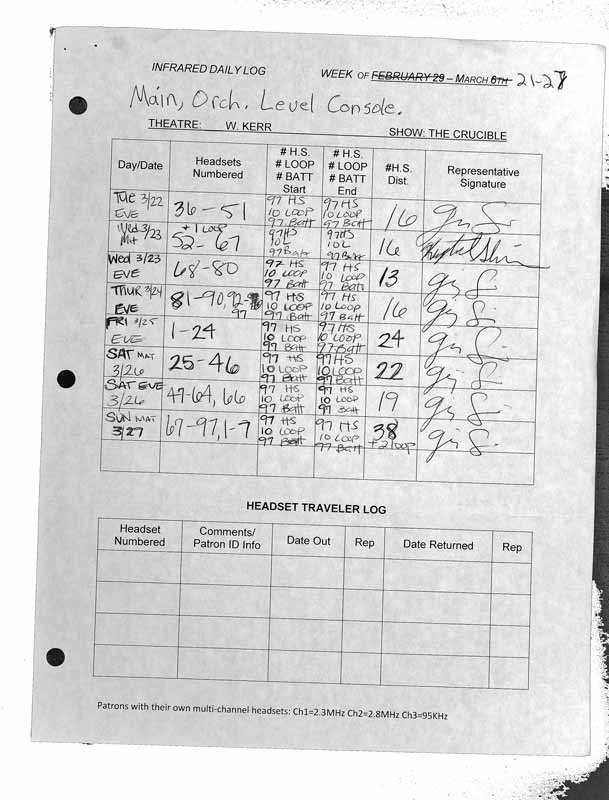 INFRARED DAILY LOG WEEK OF FEBRUARY 29 – MARCH 6TH 21-27
Main, Orch. Level Console.
THEATRE: W. KERR SHOW: THE CRUCIBLE
Day/Date Headsets Numbered # H.S. # LOOP # BATT Start # H.S. # LOOP # BATT End #H.S. Dist. Representative Signature
TUE 3/22 EVE 36-51 97 HS 10 LOOP 97 Batt 97 HS 10 LOOP 97 Batt 16
Wed 3/23 Mat + 1 Loop 52-67 97 HS 10 L 97 Batt 97 HS 10 L 97 Batt 16
Wed 3/23 EVE 68-80 97 HS 10 LOOP 97 Batt 97 HS 10 LOOP 97 Batt 13
THUR 3/24 EVE 81-90, 92-96 97 97 HS 10 LOOP 97 Batt 97 HS 10 LOOP 97 Batt 16
FRI 3/25 EVE 1-24 97 HS 10 LOOP 97 Batt 97 HS 10 LOOP 97 Batt 24
SAT MAT 3/26 25-46 97 HS 10 LOOP 97 Batt 97 HS 10 LOOP 97 Batt 22
SAT EVE 3/26 47-64, 66 97 HS 10 LOOP 97 Batt 97 HS 10 LOOP 97 Batt 19
SUN MAT 3/27 67-97, 1-7 97 HS 10 LOOP 97 Batt 97 HS 10 LOOP 97 Batt 38 +2 loop
HEADSET TRAVELER LOG
Headset Numbered Comments/ Patron ID Info Date Out Rep Date Returned Rep
Patrons with their own multi-channel headsets: Ch1=2.3MHz Ch2=2.8MHz Ch3=95KHz